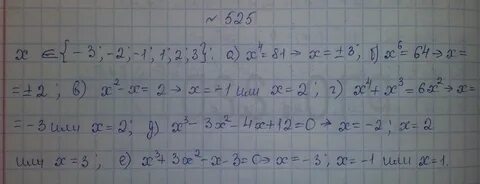 № 525
x ∈ {-3; -2; -1; 1; 2; 3}: а) x⁴ = 81 → x = ±3; б) x⁶ = 64 → x =
= ±2; в) x² - x = 2 → x = -1 или x = 2; г) x⁴ + x³ = 6x² → x =
= -3 или x = 2; д) x³ - 3x² - 4x + 12 = 0 → x = -2; x = 2
или x = 3; е) x³ + 3x² - x - 3 = 0 → x = -3; x = -1 или x = 1.